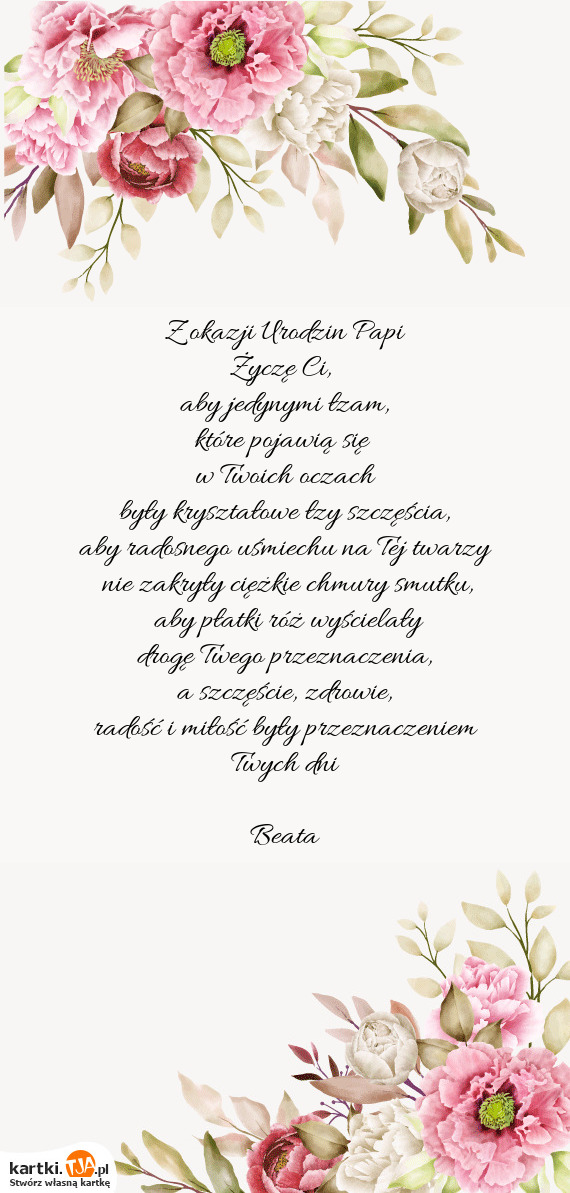 Z okazji Urodzin Papi
Życzę Ci,
aby jedynymi łzam,
które pojawią się
w Twoich oczach
były kryształowe łzy szczęścia,
aby radosnego uśmiechu na Tej twarzy
nie zakryły ciężkie chmury smutku,
aby płatki róż wyścielały
drogę Twego przeznaczenia,
a szczęście, zdrowie,
radość i miłość były przeznaczeniem
Twych dni
Beata
kartki.TJA.pl
Stwórz własną kartkę